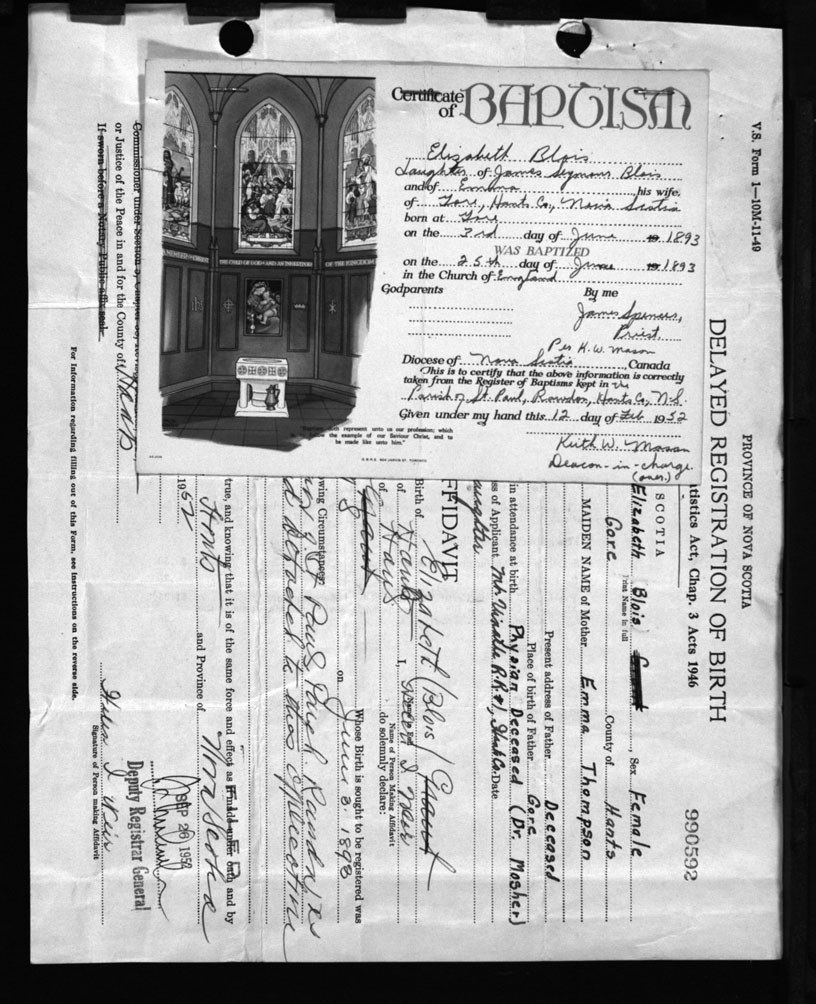 Certificate of BAPTISM
Elizabeth Blois
Daughter of James Seymour Blois
and of Emma, his wife,
of Gore, Hants Co, Nova Scotia
born at Gore
on the 3rd day of June 1893
WAS BAPTIZED
on the 25th day of June 1893
in the Church of England
Godparents By me
James Spencer,
Priest.
Per K. W. Mason
Diocese of Nova Scotia, Canada
This is to certify that the above information is correctly
taken from the Register of Baptisms kept in the
Parish of St. Paul, Rawdon, Hants Co, N.S.
Given under my hand this 12 day of Feb 1952
Keith W. Mason
Deacon-in-charge
(over.)
represent unto us our profession; which
the example of our Saviour Christ, and to
be made like unto him."
V.S. Form 1—10M-11-49
PROVINCE OF NOVA SCOTIA
DELAYED REGISTRATION OF BIRTH
990592
tistics Act, Chap. 3 Acts 1946
SCOTIA
Elizabeth Blois, Sex Female
Print Name in full
Gore County of Hants
MAIDEN NAME of Mother Emma Thompson
Present address of Father Deceased
Place of birth of Father Gore
in attendance at birth Physian Deceased (Dr. Mosher)
ss of Applicant Date
aughter
FFIDAVIT
Birth of Elizabeth (Blois)
I,
Name of Person Making Affidavit
of Hants do solemnly declare:
Whose Birth is sought to be registered was
on June 3. 1893
wing Circumstances
true, and knowing that it is of the same force and effect as if made under oath and by
Hants and Province of Nova Scotia
1952
SEP 26 1952
Deputy Registrar General
Commissioner under Section
or Justice of the Peace in and for the County of Hants
If sworn before a Notary Public affix seal.
Signature of Person making Affidavit
For information regarding filling out of this Form, see instructions on the reverse side.